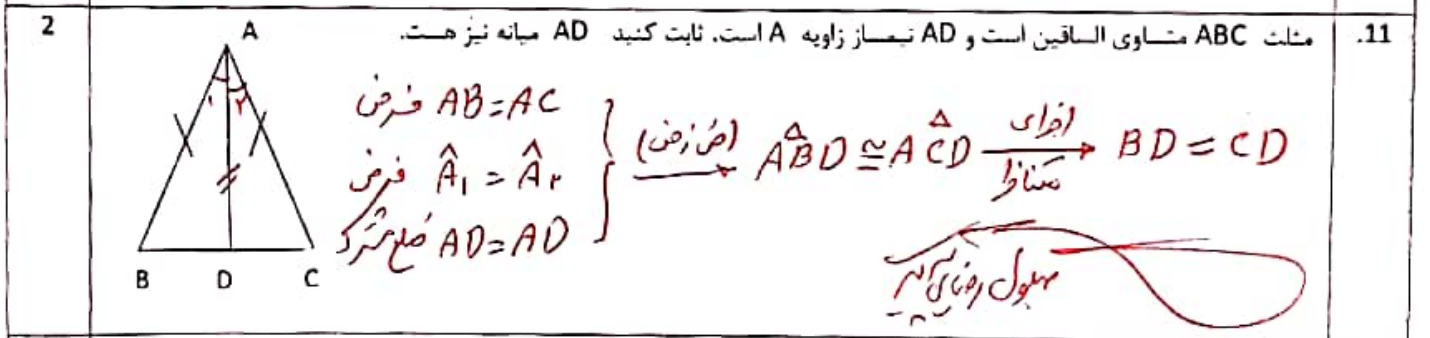 11. مثلث ABC متساوی الساقین است و AD نیمساز زاویه A است. ثابت کنید AD میانه نیز هست. 2
A
۱ ۲
B D C
AB=AC فرض
Â₁ = Â₂ فرض
AD=AD ضلع مشترک
(ض ز ض)
AB̂D ≅ AĈD
اجزای
متناظر
BD = CD
بهلول رضایی